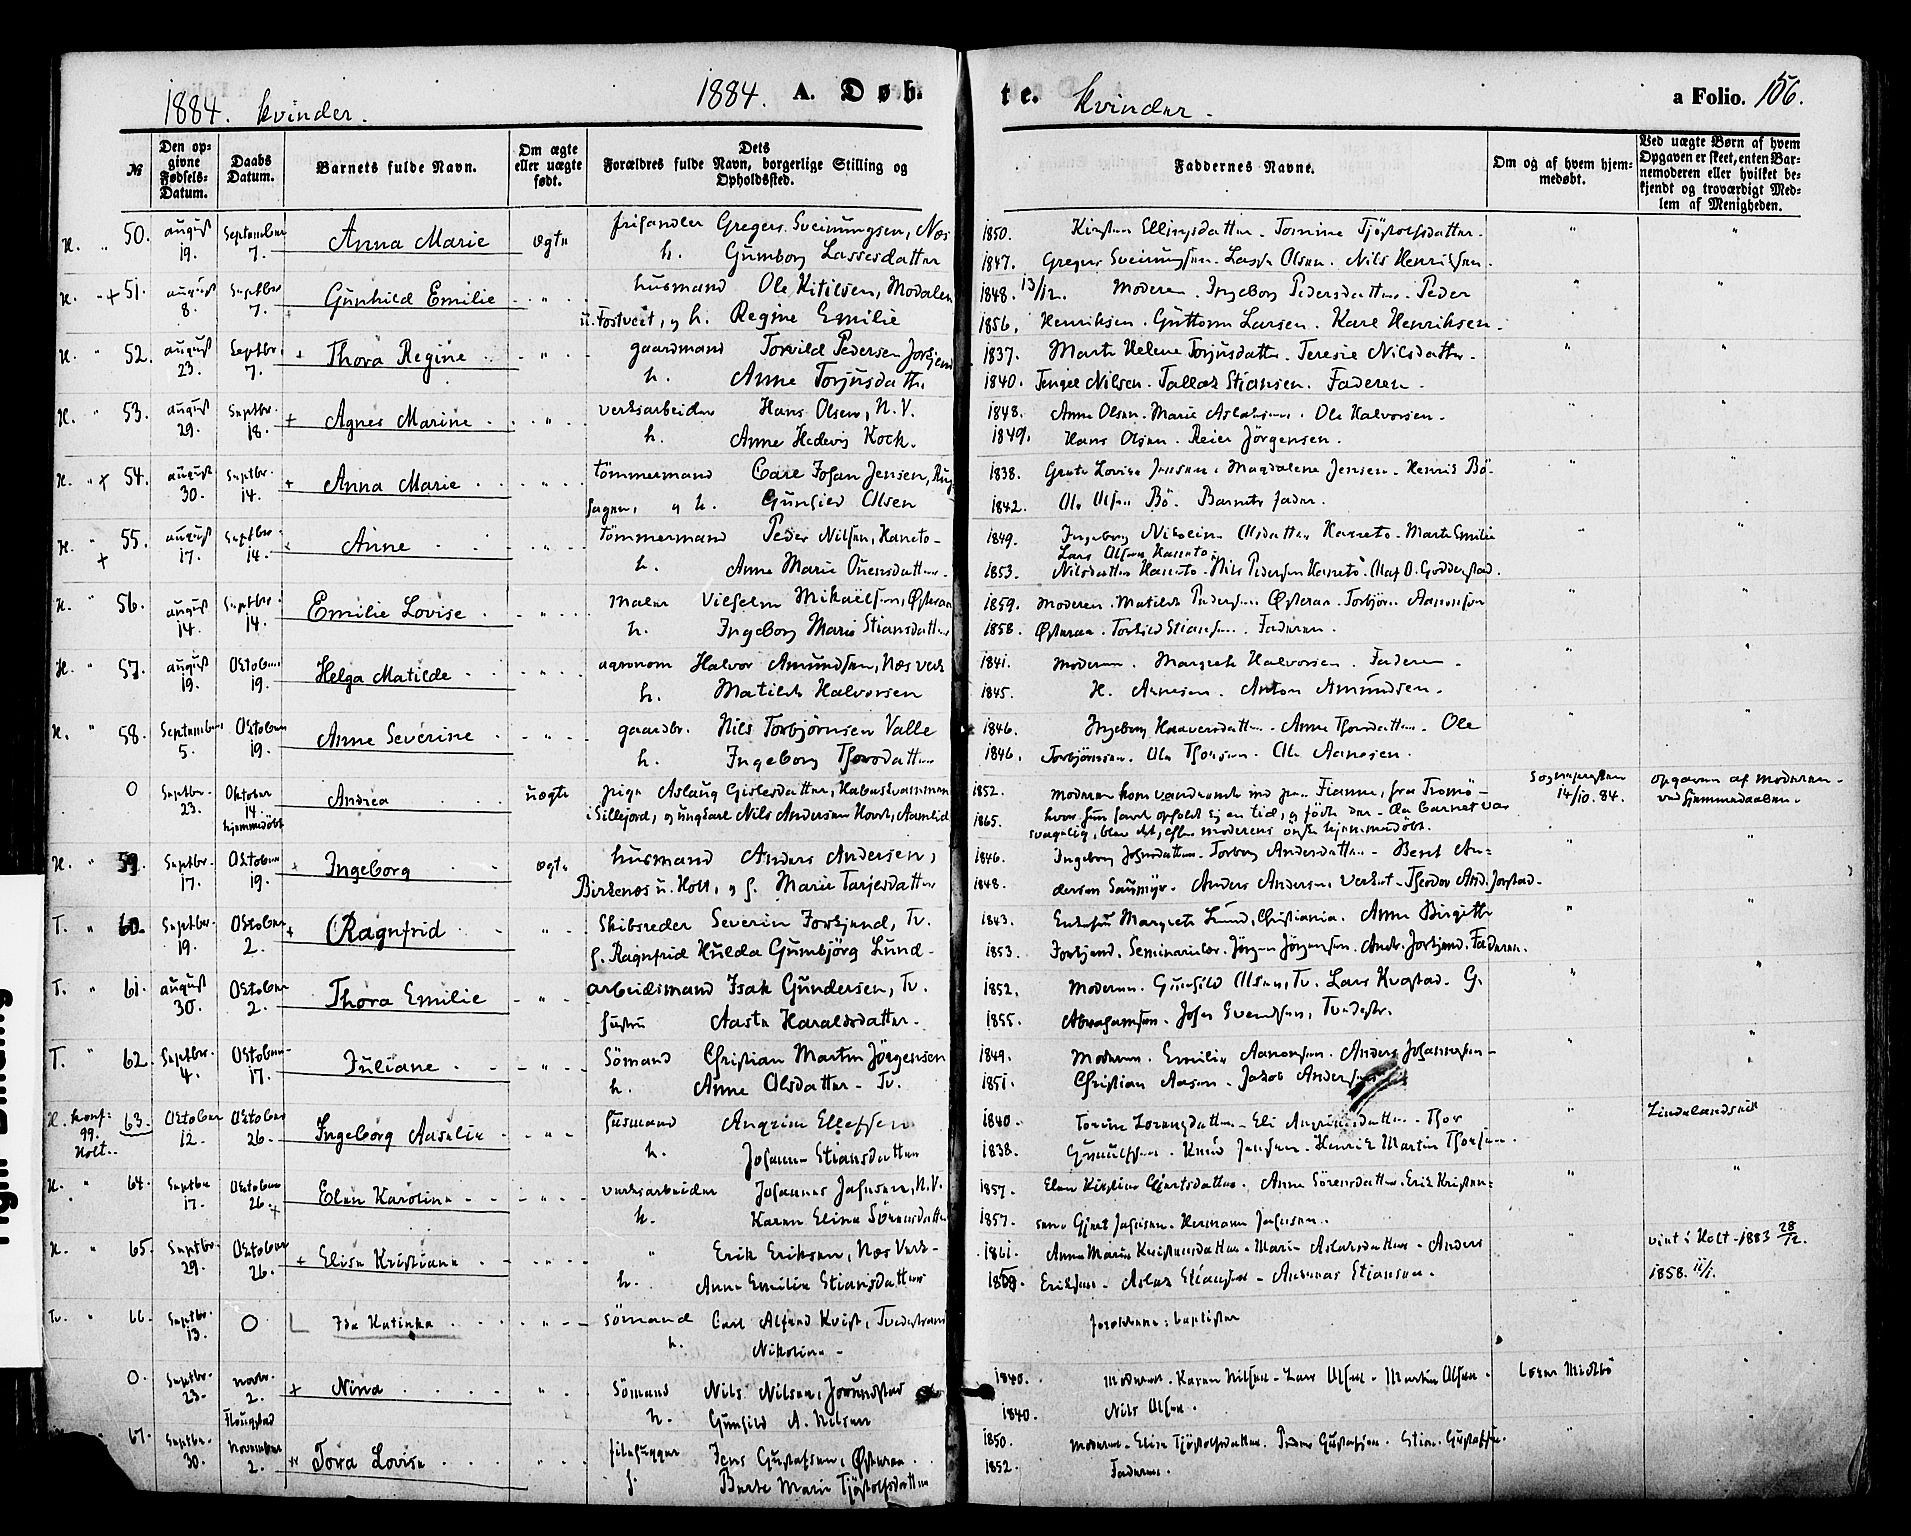 1884. kvinder. 1884. A. Døbte. kvinder. a Folio. 156.
№ Den opgivne Fødsels-Datum. Daabs Datum. Barnets fulde Navn. Om ægte eller uægte født. Dets Forældres fulde Navn, borgerlige Stilling og Opholdssted. Faddernes Navne. Om og af hvem hjemmedøbt. Ved uægte Børn af hvem Opgaven er skeet, enten Barnemoderen eller hvilket bekjendt og troværdigt Medlem af Menigheden.
H. " 50. august September Anna Marie ægte Gregers Sveinungsen, Næs 1850. Kirsten Ellingsdatter - Tomine Tjøstolfsdatter. " "
19. 7. h. Gumborg Lassesdatter 1847. Gregers Sveinungsen - Lasse Olsen. Nils Henriksen.
H. " + 51. august Septbr Gunhild Emilie " husmand Ole Kitilsen, Modalen 1848. 13/12. Moderen. Ingeborg Pedersdatter. Peder " "
8. 7. u. Fostveit, og h. Regine Emilie 1856. Henriksen. Guttorm Larsen. Karl Henriksen.
H. " 52. august Septbr. + Thora Regine " gaardmand Torvild Pedersen 1837. Marte Helene Torjusdatter. Teresie Nilsdatter. " "
23. 7. h. Anne Torjusdatter 1840. Tengel Nilsen. Tallak Stiansen. Faderen.
H. " 53. august Septbr. + Agnes Marine " verksarbeider Hans Olsen, N.V. 1848. Anne Olsen. Marie Aslaksen. Ole Halvorsen. " "
29. 18. h. Anne Hedevig Koch. 1849. Hans Olsen. Reier Jörgensen.
H. " + 54. august Septbr. + Anna Marie " tömmermand Carl Johan Jensen, 1838. Grete Lovise Jensen. Magdalene Jensen. Henrik Bö. " "
30. 14. og h. Gunhild Olsen 1842. Ole Olsen Bö. Barnets fader.
H. " + 55. august Septbr. Anne " tömmermand Peder Nilsen, Haneto 1849. Ingeborg Nikoline Olsdatter Haneto. Marte Emilie " "
Lars Olsen Haneto
17. 14. h. Anne Marie 1853. Nilsdatter Haneto. Nils Pedersen Haneto. Olaf O. Godderstad.
H. " 56. august Septbr. Emilie Lovise " maler Vilhelm Mikaelsen, Østeraa 1859. Moderen. Matilde Østeraa. Torbjörn Aanonsen " "
14. 14. h. Ingeborg Marie Stiansdatter 1858. Østeraa. Torkild Stiansen. Faderen.
H. " 57. august Oktober Helga Matilde " agronom Halvor Amundsen, Næs verk 1841. Moderen. Margrete Halvorsen. Faderen. " "
19. 19. h. Matilde Halvorsen 1845. H. Aanesen. Anton Amundsen.
H. " 58. September Oktober Anne Severine " gaardbr. Nils Torbjörnsen Valle 1846. Ingeborg Haaversdatter. Anne Thorsdatter. Ole " "
5. 19. h. Ingeborg Thorsdatter 1846. Torbjörnsen. Ole Thorsen. Ole Aanesen.
0 Septbr. Oktober Andrea uægte pige Aslaug Gislesdatter, 1852. moderen kom vandrende ind fra Tromö Sognepresten opgaven af moderen
23. 14. hjemmedöbt i Sillejord, og ungkarl Nils Andersen Hovet, Aamlid 1865. hvor hun havde opholdt sig en tid, og fødte der - da barnet var 14/10. 84. ved hjemmedaaben.
svagelig, blev det, efter moderens önske hjemmedöbt.
H. " 59. Septbr. Oktober + Ingeborg ægte husmand Anders Andersen, 1846. Ingeborg Torborg Andersdatter - Bent An= " "
17. 19. Birkenæs u. Holt, og h. Marie Tarjesdatter 1848. dersen Saumyr. Anders Andersen Verket - Theodor And. Jorstad.
T. " 60. Septbr. Oktober + Ragnfrid " Skibsreder Severin Forskjend, Tv. 1843. Enkefru Margrete Lund, Christiania. Anne Birgitte " "
19. 2. h. Ragnfrid Hulda Gumbjörg Lund 1853. Seminarielær. Jörgen Jörgensen. Faderen.
T. " 61. august Oktober Thora Emilie " arbeidsmand Isak Gundersen, Tv. 1852. Moderen. Gunhild Olsen, Tv. Lars Hugstad. G. " "
30. 2. hustru Aaste Haraldsdatter. 1855. Abrahamsen. Johan Svendsen, Tvedestr.
T. " 62. Septbr. Oktober Juliane " Sömand Christian Martin Jörgensen 1849. Moderen. Emilie Aanonsen. Anders Johannessen " "
4. 17. h. Anne Olsdatter - Tv. 1851. Christian Aasen. Jakob Andersen
H. konf: 63. Oktober Oktober Ingeborg Aaselie " husmand Angrim Ellefsen 1840. Torine Lorensdatter - Eli Angrimsdatter - Thor " Lindelandseie
99. Holt.. 12. 26. h. Johanne Stiansdatter 1838. Gunulfsen. Knud Jensen. Henrik Martin Thorsen.
H. " 64. Septbr Oktober Elen Karoline " verksarbeider Johannes N.V. 1857. Elen Kirstine Gjertsdatter. Anne Sörensdatter. Erik Kristen= " "
17. 26. + h. Karen Elina Sörensdatter 1857. sen. Gjert Hermann
H. " 65. Septbr. Oktober + Elise Kristiane " " Erik Eriksen, Næs Verk 1861. Anne Marie Kristensdatter - Marie Aslaksdatter - Anders " viet i Holt - 1883 28/12.
29. 26. h. Anne Emilie Stiansdatter 1859. Eriksen - Aslak Stiansen - Andreas Stiansen. 1858. 11/1.
Tv. " 66. Septbr. 0 Ida Katinka " sömand Carl Alfred Kvist, Tvedestrand forældrene: baptister " "
13. h. Nikoline
0. Septbr. novbr. + Nina " Sömand Nils Nilsen, Jorundstad 1840. Moderen. Karen Nilsen - Lars Olsen - Martin Olsen. Lars Midtbö "
23. 2. h. Gunhild A. Nilsen 1840. Nils Olsen.
67. Septbr. November Tora Lovise " filehugger Jens Gustafsen, Østeraa 1850. Moderen - Elise Tjöstolfsdatter. Peder Gustafsen. Stian Gustafsen. "
30. 2. h. Berte Marie Tjöstolfsdatter 1852. Faderen.